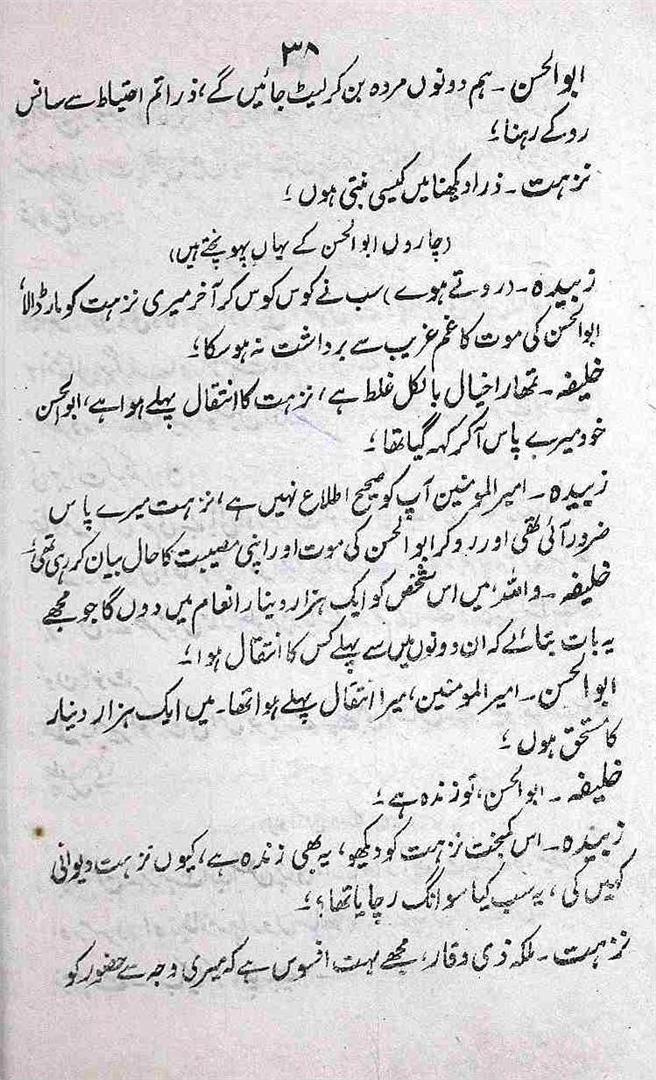 ۳۸
ابوالحسن ۔ ہم دونوں مردہ بن کر لیٹ جائیں گے، ذرا تم احتیاط سے سانس
روکے رہنا ؛
نزہت ۔ ذرا دیکھنا میں کیسی بنتی ہوں ؛
(چاروں ابوالحسن کے یہاں پہونچتے ہیں)
زبیدہ ۔ (روتے ہوے) سب نے کوس کوس کر آخر میری نزہت کو مار ڈالا،
ابوالحسن کی موت کا غم غریب سے برداشت نہ ہو سکا ؛
خلیفہ ۔ تمھارا خیال بالکل غلط ہے، نزہت کا انتقال پہلے ہوا ہے، ابوالحسن
خود میرے پاس آکر کہہ گیا تھا ؛
زبیدہ ۔ امیرالمومنین آپ کو صحیح اطلاع نہیں ہے، نزہت میرے پاس
ضرور آئی تھی اور رو کر ابوالحسن کی موت اور اپنی مصیبت کا حال بیان کر رہی تھی ؛
خلیفہ ۔ واللہ، میں اس شخص کو ایک ہزار دینار انعام میں دوں گا جو مجھے
یہ بات بتائے کہ ان دونوں میں سے پہلے کس کا انتقال ہوا ؛
ابوالحسن ۔ امیرالمومنین، میرا انتقال پہلے ہوا تھا ۔ میں ایک ہزار دینار
کا مستحق ہوں ؛
خلیفہ ۔ ابوالحسن، تو زندہ ہے ؛
زبیدہ ۔ اس کمبخت نزہت کو دیکھو، یہ بھی زندہ ہے، کیوں نزہت دیوانی
کہیں کی، یہ سب کیا سوانگ رچایا تھا ؟ ؛
نزہت ۔ ملکہ ذی وقار، مجھے بہت افسوس ہے کہ میری وجہ سے حضور کو